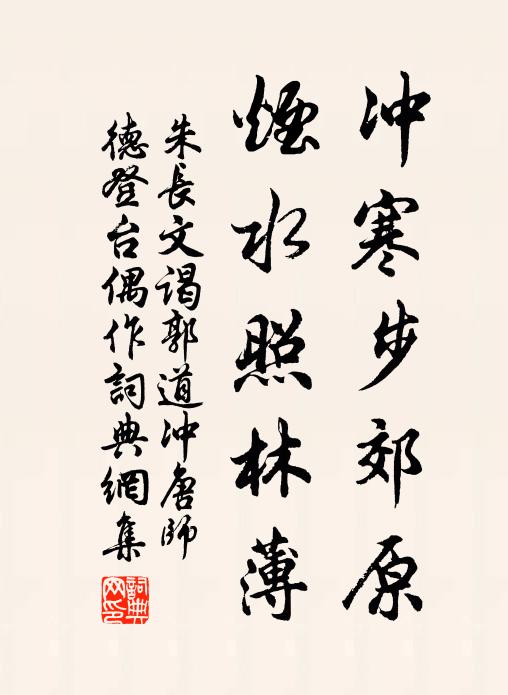 冲寒步郊原
煙水照林薄
朱長文谒郭道冲唐師
德登台偶作詞典網集
詞典網印